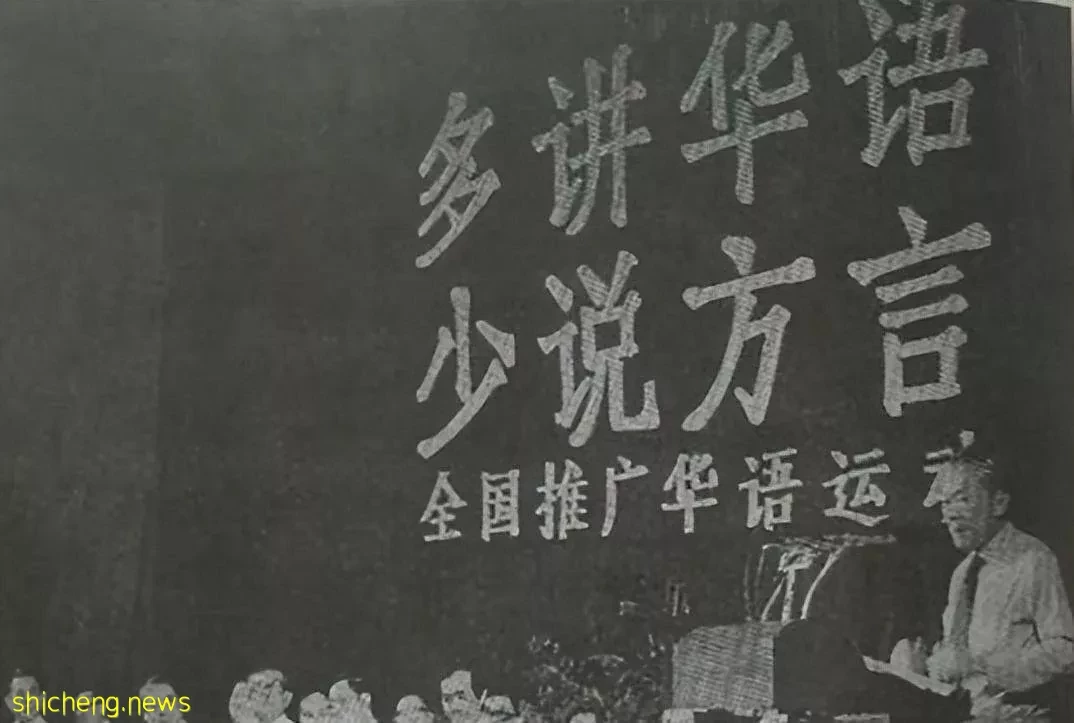 多讲华语
少说方言
全国推广华语运
shicheng.news